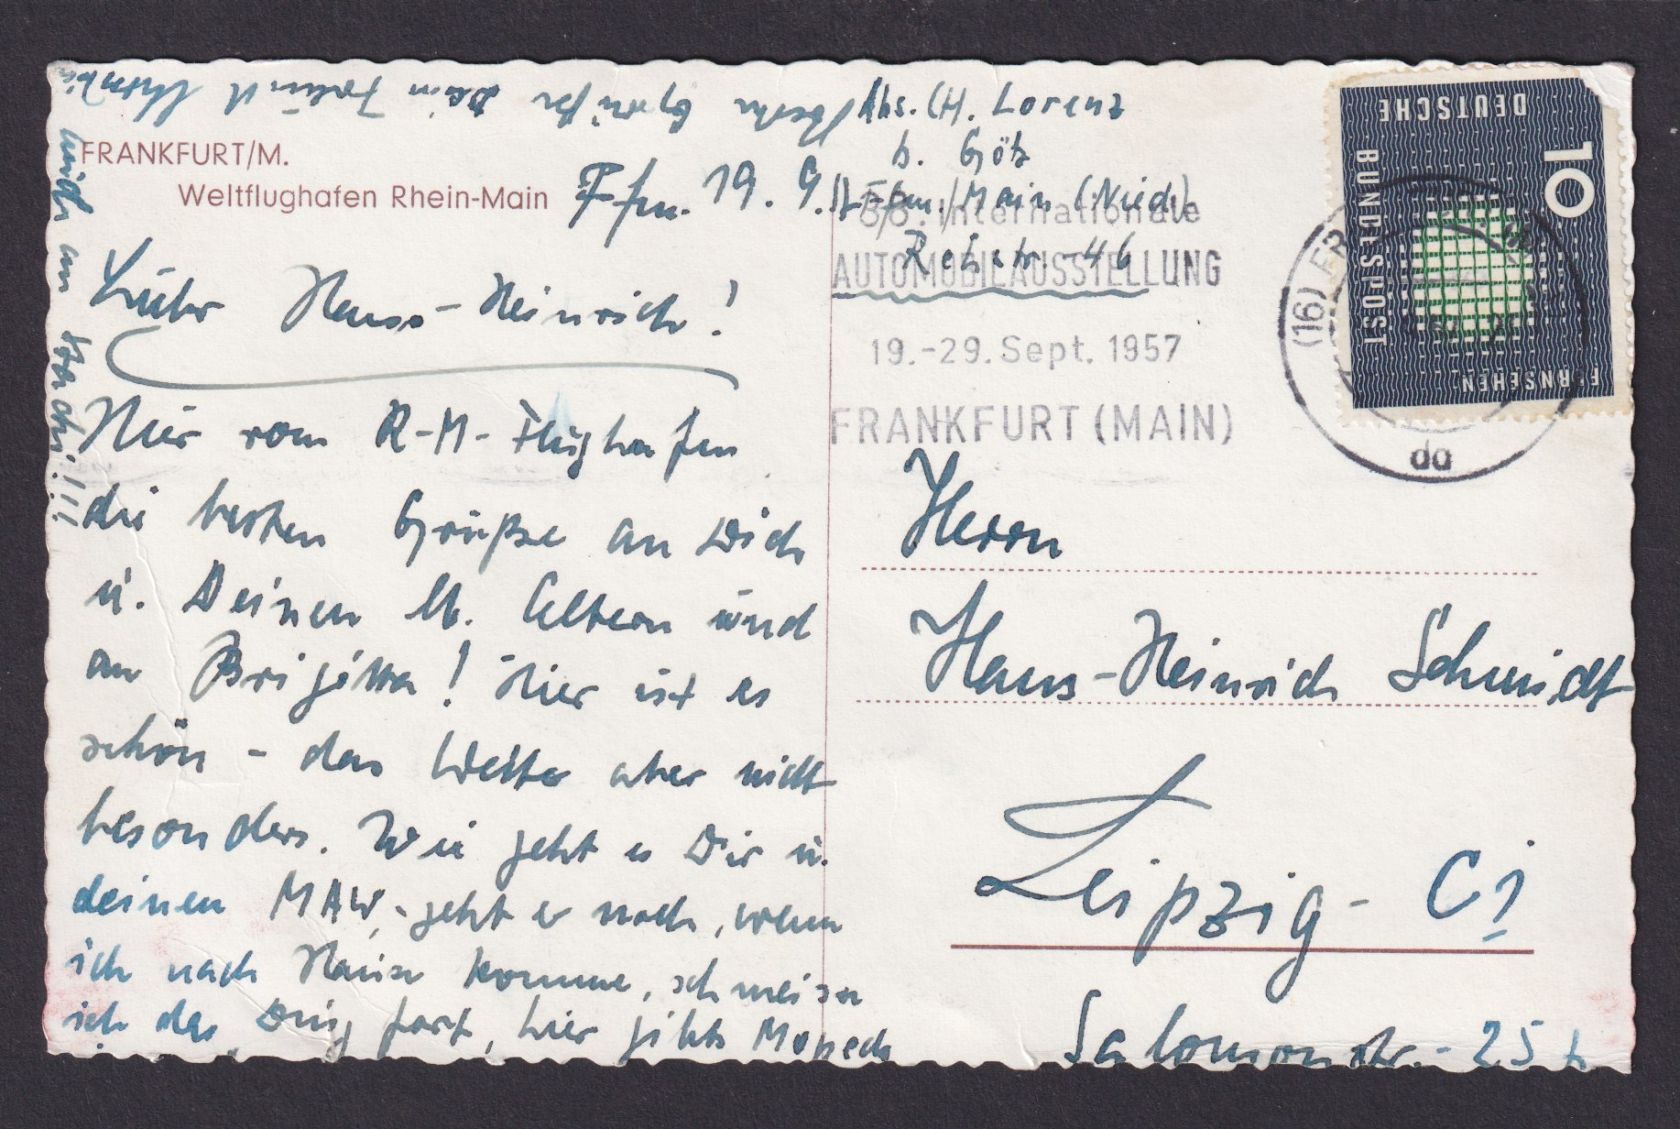 FRANKFURT/M.
Weltflughafen Rhein-Main
Ffm. 19. 9.
Hans-Heinrich!
Hier vom R-M-Flughafen
die besten Grüße an Dich
u. Deinen lb. Eltern und
an Brigitta! Hier ist es
schön - das Wetter aber nicht
besonders. Wie geht es Dir u.
deinen MAW, geht er noch, wenn
ich nach Hause komme, schmeise
ich das Ding fort, hier gibts Mopeds
Dein Freund
mich an
!!!
Abs. H. Lorenz
b. Götz
Ffm./Main (Nied)
46
Internationale
AUTOMOBILAUSSTELLUNG
19.-29. Sept. 1957
FRANKFURT (MAIN)
DEUTSCHE
BUNDESPOST
10
FERNSEHEN
(16) FR
da
Herrn
Hans-Heinrich Schmidt
Leipzig - C1
Salomonstr. - 25 b